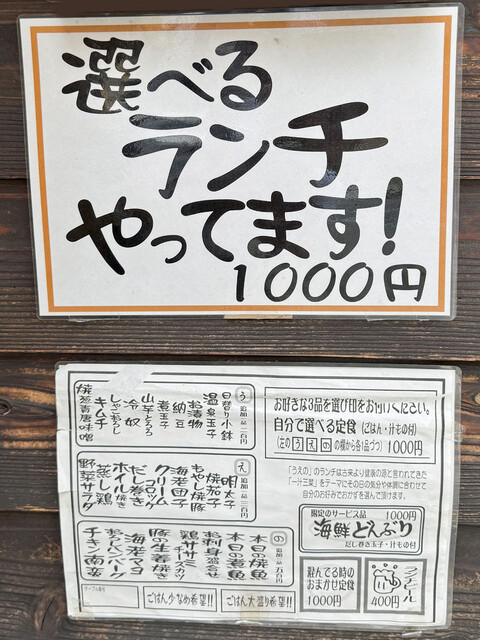 選べる
ランチ
やってます!
1000円
お好きな3品を選び印をお付けください。
自分で選べる定食(ごはん・汁もの付)
(左の う え の の欄から各1品づつ) 1000円
「うえの」のランチは古来より健康の源と言われてきた
「一汁三菜」をテーマにその日の気分や体調に合わせて
自分のお好みでおかずを選んで頂けます。
限定のサービス品 1000円
海鮮どんぶり
だし巻き玉子・汁もの付
混んでる時の
おまかせ定食
1000円
400円
う 追加一品二百円
日替り小鉢
温泉玉子
お漬物
納豆
煮玉子
山芋とろろ
冷奴
しゃこおろし
キムチ
焼葱青唐味噌
え 追加一品三百円
明太子
焼茄子
もやし焼豚
海老団子
クリームコロッケ
だし巻き
ホイル焼き
蒸し鶏
野菜サラダ
の 追加一品五百円
本日の焼魚
本日の煮魚
お刺身盛合せ
鶏ササミチーズカツ
豚の生姜焼き
海老マヨ
おろしハンバーグ
チキン南蛮
テーブル番号
ごはん少なめ希望!!
ごはん大盛り希望!!